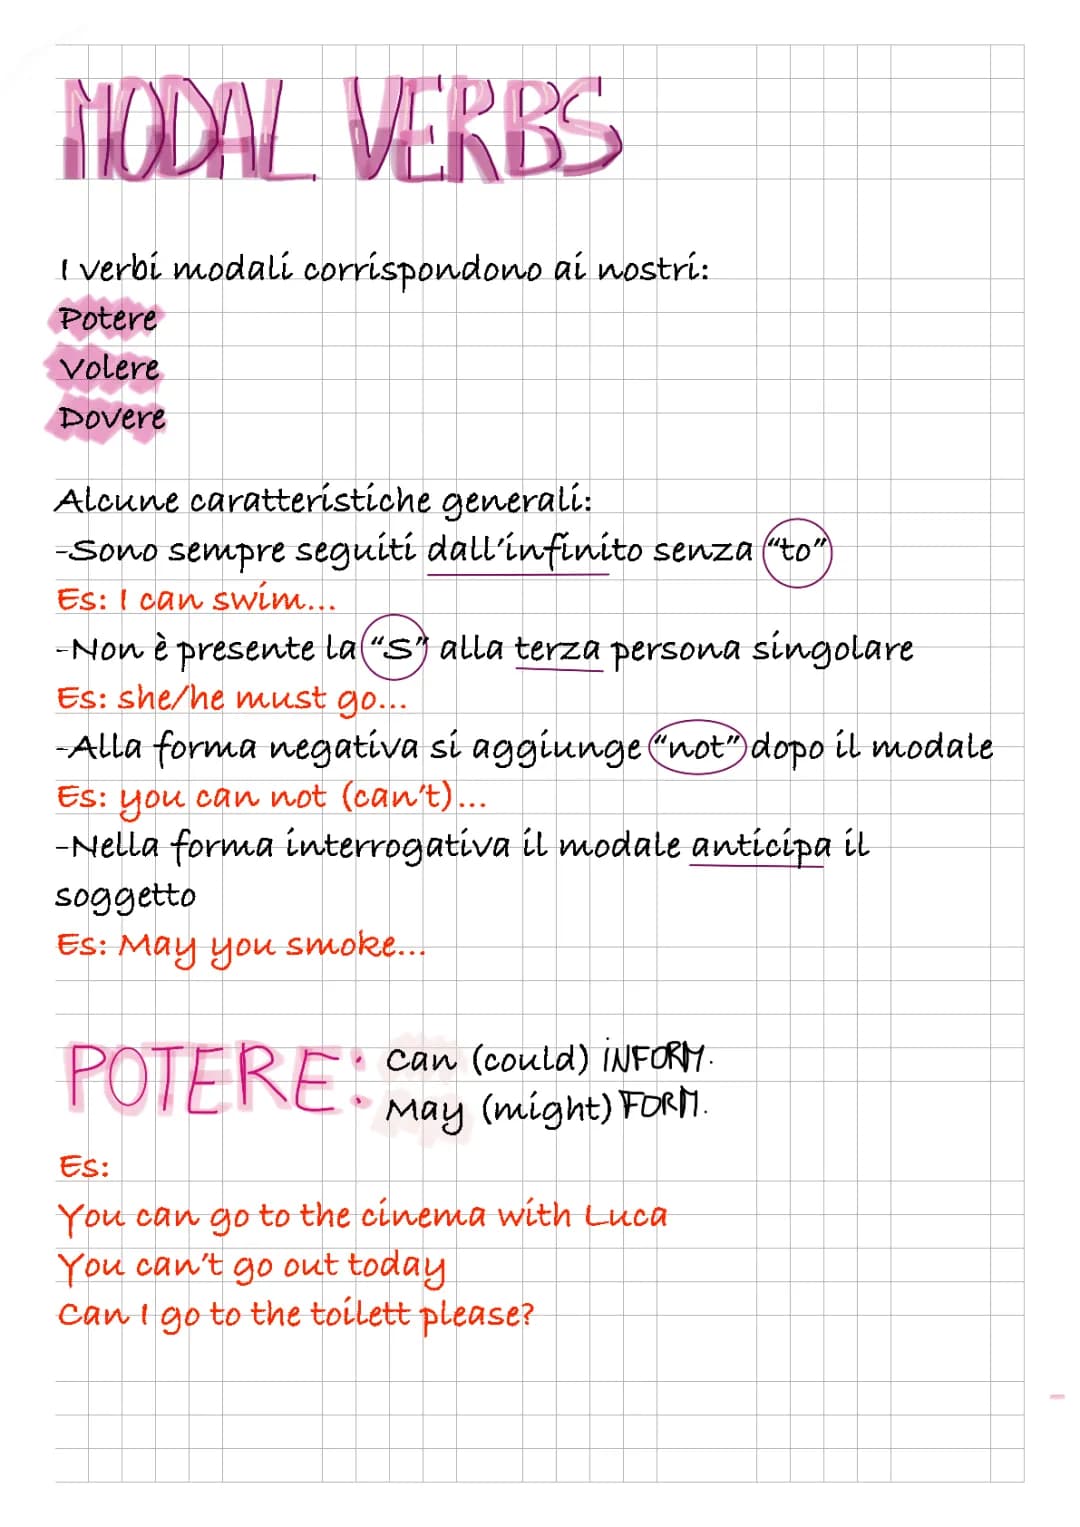 MODAL VERBS
I verbi modali corrispondono ai nostri:
Potere
Volere
Dovere
Alcune caratteristiche generali:
-Sono sempre seguiti dall'infinito senza "to"
Es: I can swim...
-Non è presente la "S" alla terza persona singolare
Es: she/he must go...
-Alla forma negativa si aggiunge "not" dopo il modale
Es: you can not (can't)...
-Nella forma interrogativa il modale anticipa il
soggetto
Es: May you smoke...
POTERE: can (could) INFORM.
May (might) FORM.
Es:
You can go to the cinema with Luca
You can't go out today
Can I go to the toilett please?